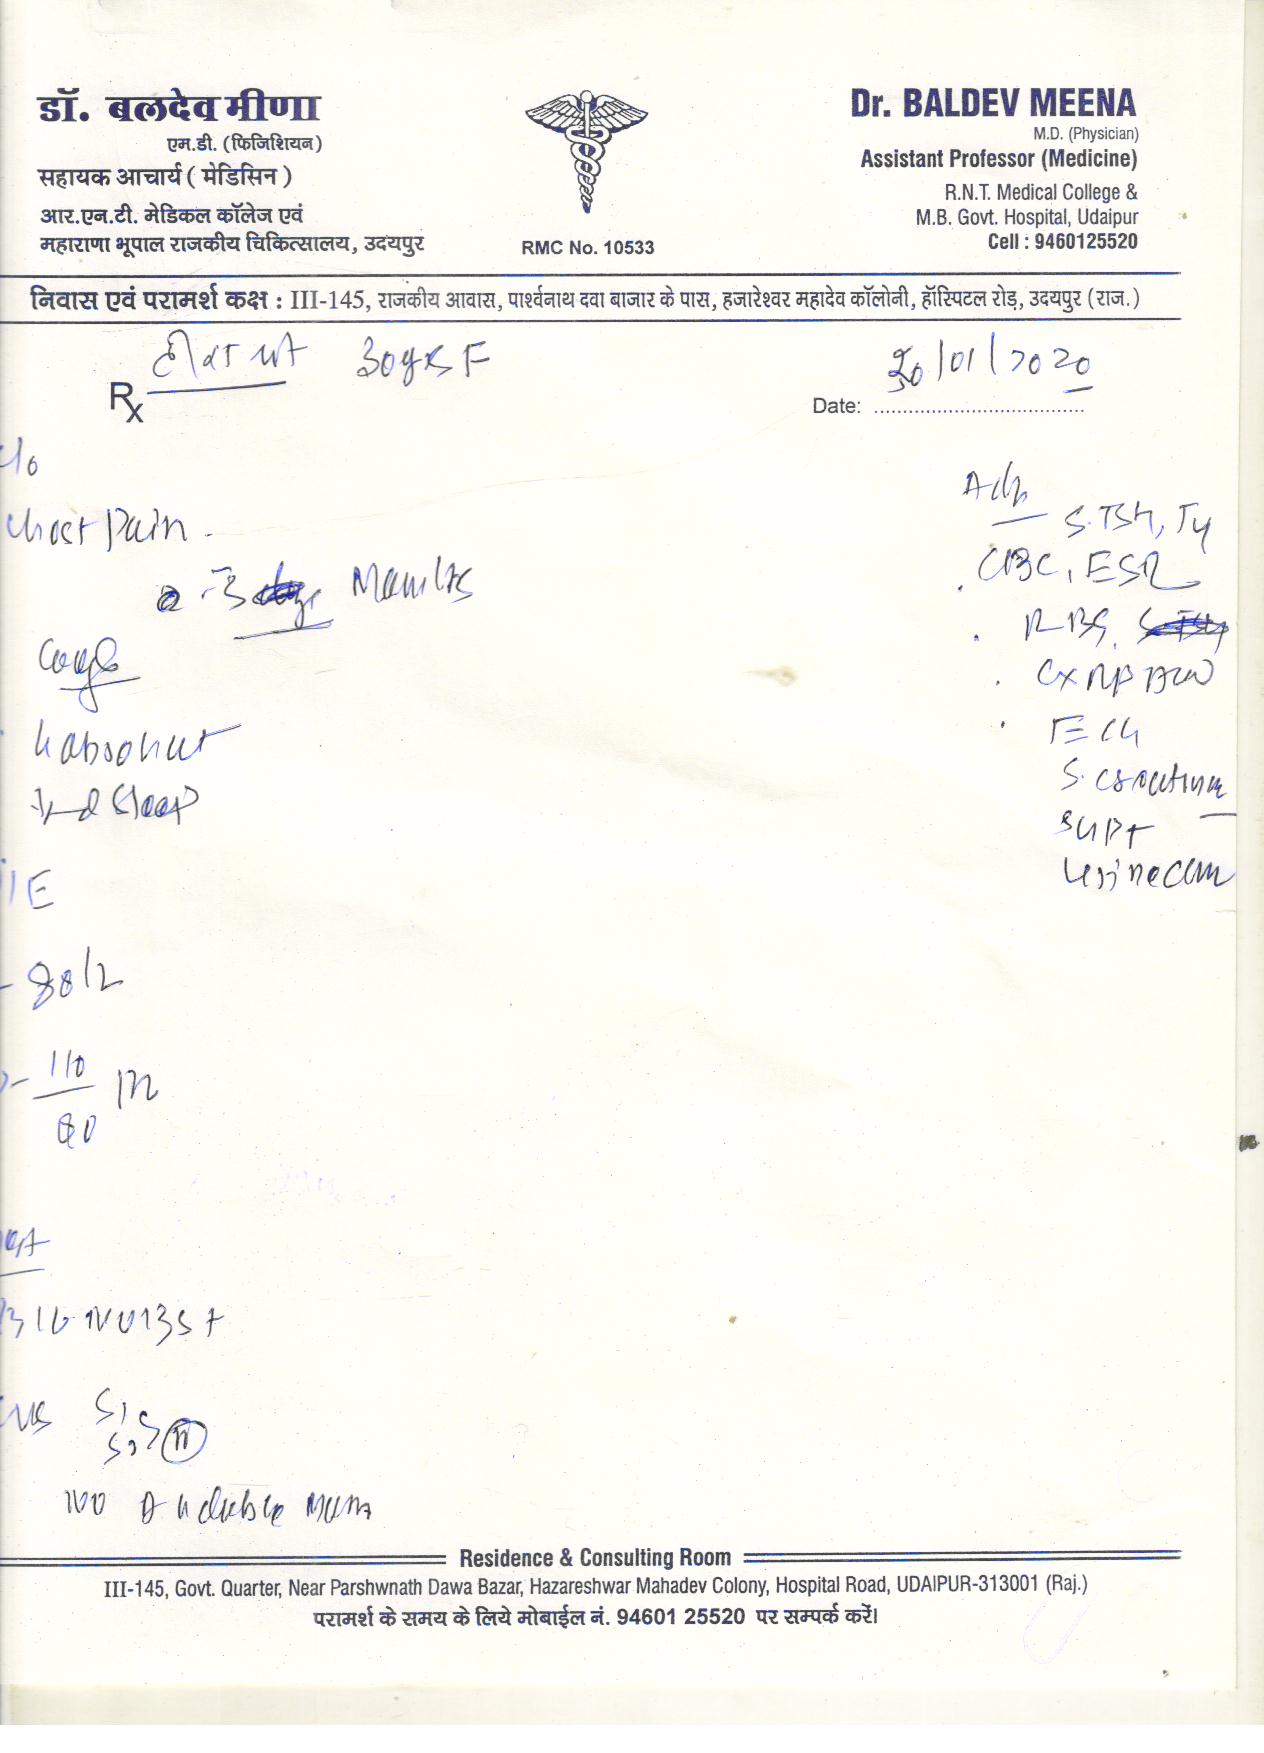 डॉ. बलदेव मीणा
एम.डी. (फिजिशियन)
सहायक आचार्य ( मेडिसिन )
आर.एन.टी. मेडिकल कॉलेज एवं
महाराणा भूपाल राजकीय चिकित्सालय, उदयपुर
RMC No. 10533
Dr. BALDEV MEENA
M.D. (Physician)
Assistant Professor (Medicine)
R.N.T. Medical College &
M.B. Govt. Hospital, Udaipur
Cell : 9460125520
निवास एवं परामर्श कक्ष : III-145, राजकीय आवास, पार्श्वनाथ दवा बाजार के पास, हजारेश्वर महादेव कॉलोनी, हॉस्पिटल रोड़, उदयपुर (राज.)
30yrs F
Rx
Date: 30/01/2020
C/o
Chest Pain
Cough
Sleep
/E
110/80
S1
S2
No Audible Mum
S.TSH, T4
CBC, ESR
RBS,
CX
ECG
S. Creatinine
SGPT
Urine
Residence & Consulting Room
III-145, Govt. Quarter, Near Parshwnath Dawa Bazar, Hazareshwar Mahadev Colony, Hospital Road, UDAIPUR-313001 (Raj.)
परामर्श के समय के लिये मोबाईल नं. 94601 25520 पर सम्पर्क करें।